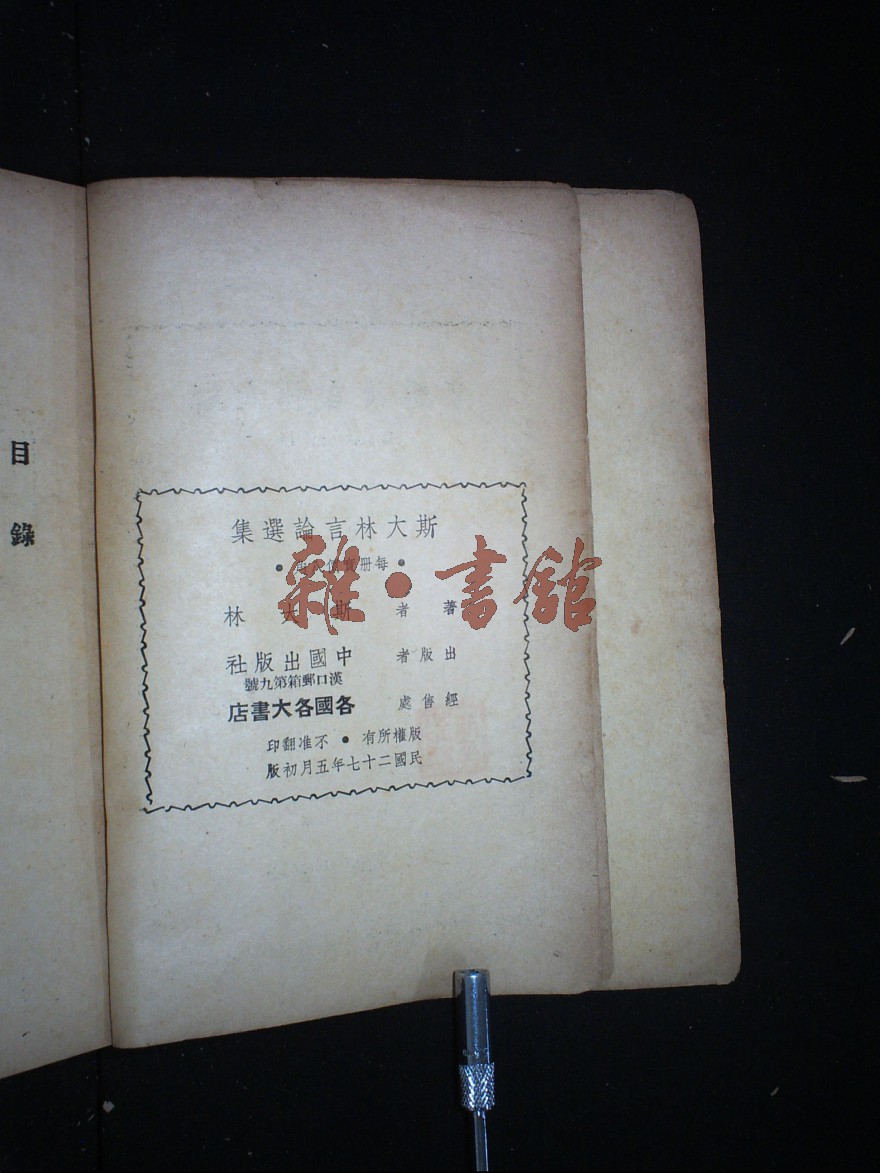 目錄
斯大林言論選集
●每冊實價
著者 斯大林
出版者 中國出版社
漢口郵箱第九號
經售處 各國各大書店
版權所有●不准翻印
民國二十七年五月初版
雜·書館